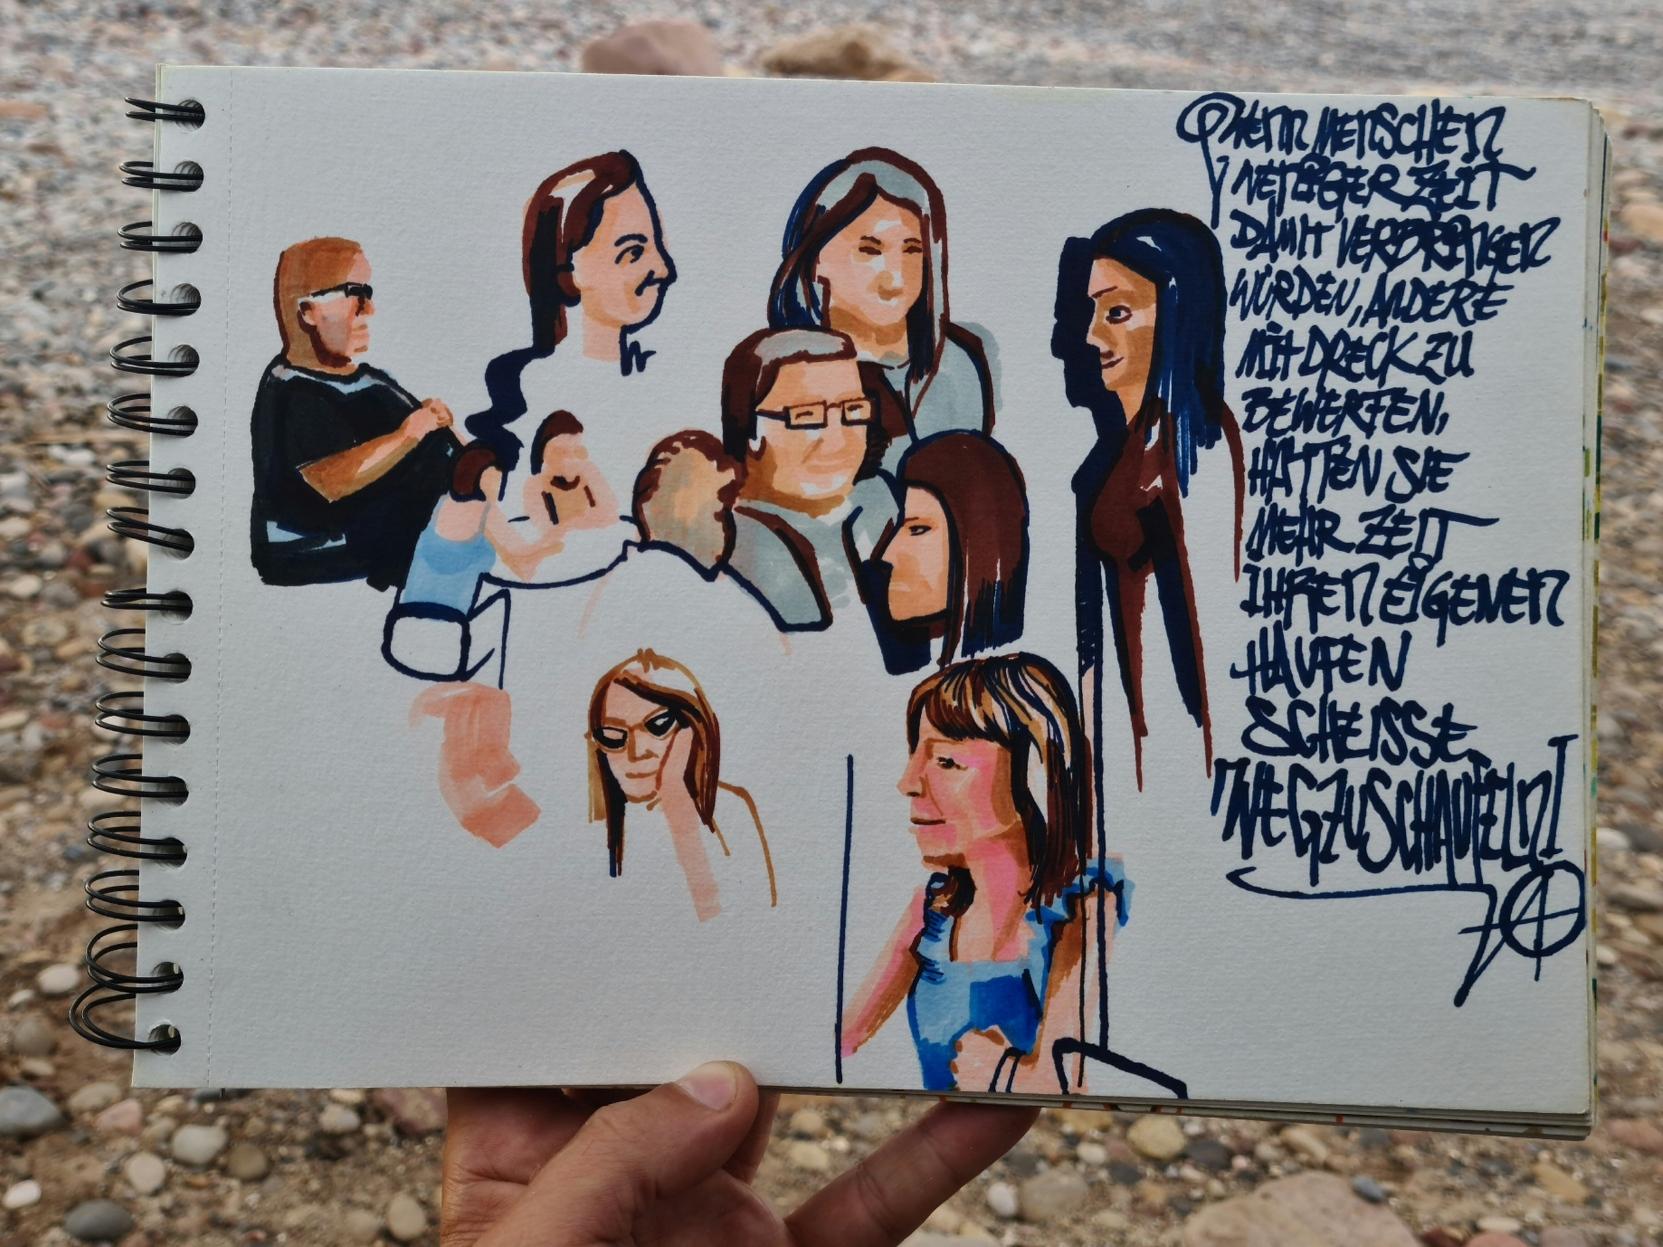 WENN MENSCHEN
WENIGER ZEIT
DAMIT VERBRINGEN
WÜRDEN, ANDERE
MIT DRECK ZU
BEWERFEN,
HÄTTEN SIE
MEHR ZEIT
IHREN EIGENEN
HAUFEN
SCHEISSE
WEGZUSCHAUFELN!